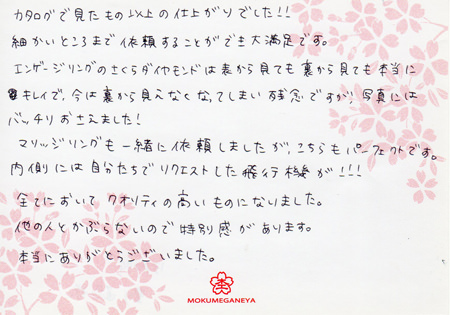 カタログで見たもの以上の仕上がりでした!!
細かいところまで依頼することができ大満足です。
エンゲージリングのさくらダイヤモンドは表から見ても裏から見ても本当に
キレイで、今は裏から見えなくなってしまい残念ですが、写真には
バッチリおさえました!
マリッジリングも一緒に依頼しましたが、こちらもパーフェクトです。
内側には自分たちでリクエストした飛行機が!!!
全てにおいてクオリティの高いものになりました。
他の人とかぶらないので特別感があります。
本当にありがとうございました。
MOKUMEGANEYA